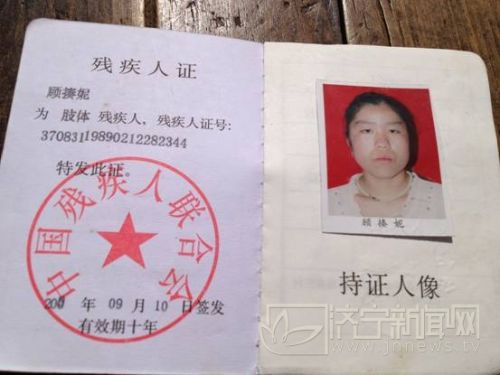 残疾人证
顾揍妮
为 肢体 残疾人，残疾人证号：
37083119890212282344
特发此证。
中国残疾人联合会
年 09 月 10 日签发
有效期十年
顾揍妮
持证人像
济宁新闻网
www.jnnews.tv